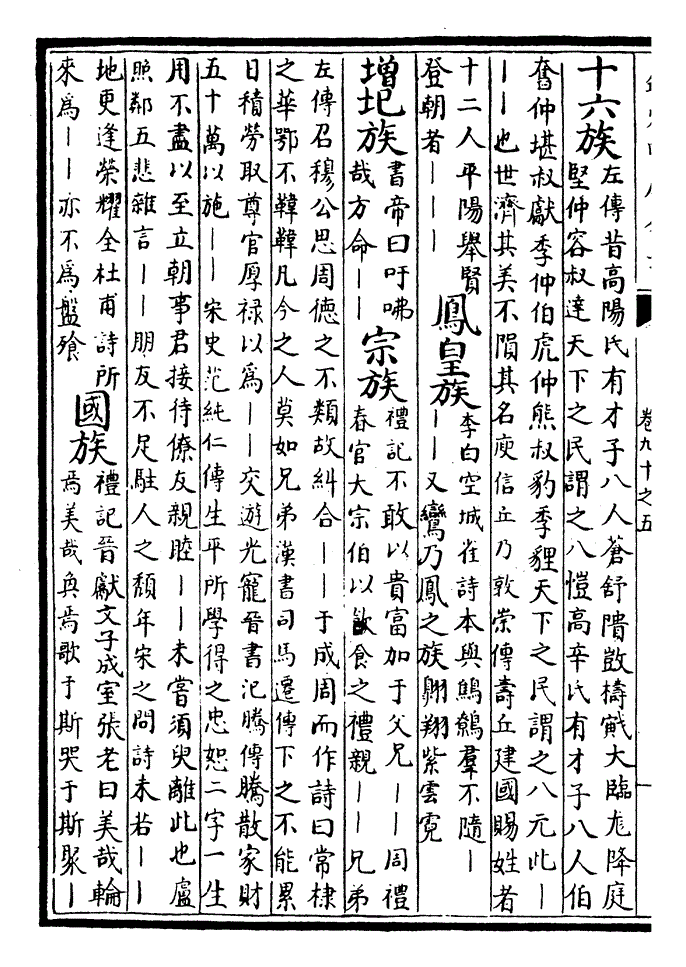 十六族
左傳昔高陽氏有才子八人蒼舒隤敳檮戭大臨尨降庭
堅仲容叔達天下之民謂之八愷高辛氏有才子八人伯
奮仲堪叔獻季仲伯虎仲熊叔豹季貍天下之民謂之八元此丨
丨丨也世濟其美不隕其名庾信丘乃敦崇傳壽丘建國賜姓者
十二人平陽舉賢
登朝者丨丨丨
鳳皇族
李白空城雀詩本與鷦鷯羣不隨丨
丨丨又鸞乃鳳之族翺翔紫雲霓
增圯族
書帝曰吁咈
哉方命丨丨
宗族
禮記不敢以貴富加于父兄丨丨周禮
春官大宗伯以飲食之禮親丨丨兄弟
左傳召穆公思周德之不類故糾合丨丨于成周而作詩曰常棣
之華鄂不韡韡凡今之人莫如兄弟漢書司馬遷傳下之不能累
日積勞取尊官厚祿以為丨丨交遊光寵晉書氾騰傳騰散家財
五十萬以施丨丨宋史范純仁傳生平所學得之忠恕二字一生
用不盡以至立朝事君接待僚友親睦丨丨未嘗須臾離此也盧
照鄰五悲雜言丨丨朋友不足駐人之頹年宋之問詩未若丨丨
地更逢榮耀全杜甫詩所
來為丨丨亦不為盤飱
國族
禮記晉獻文子成室張老曰美哉輪
焉美哉奐焉歌于斯哭于斯聚丨
卷九十之五